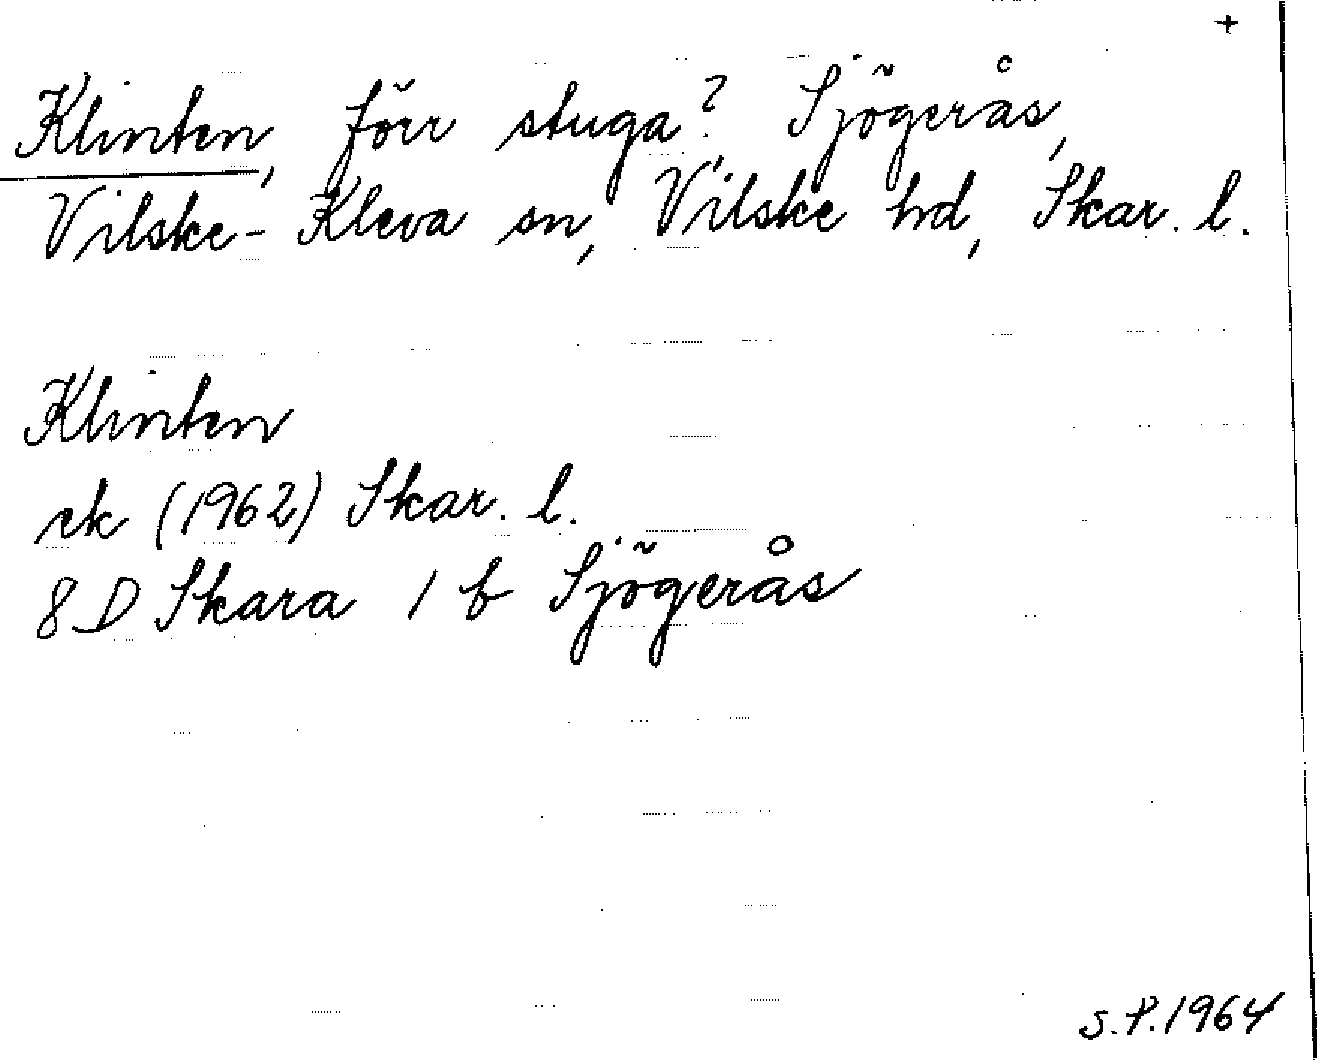 +
Klinten, förr stuga? Sjögerås,
Vilske-Kleva sn, Vilske hd, Skar. l.
Klinten
ek (1962) Skar. l.
8 D Skara 1 b Sjögerås
S.P. 1964